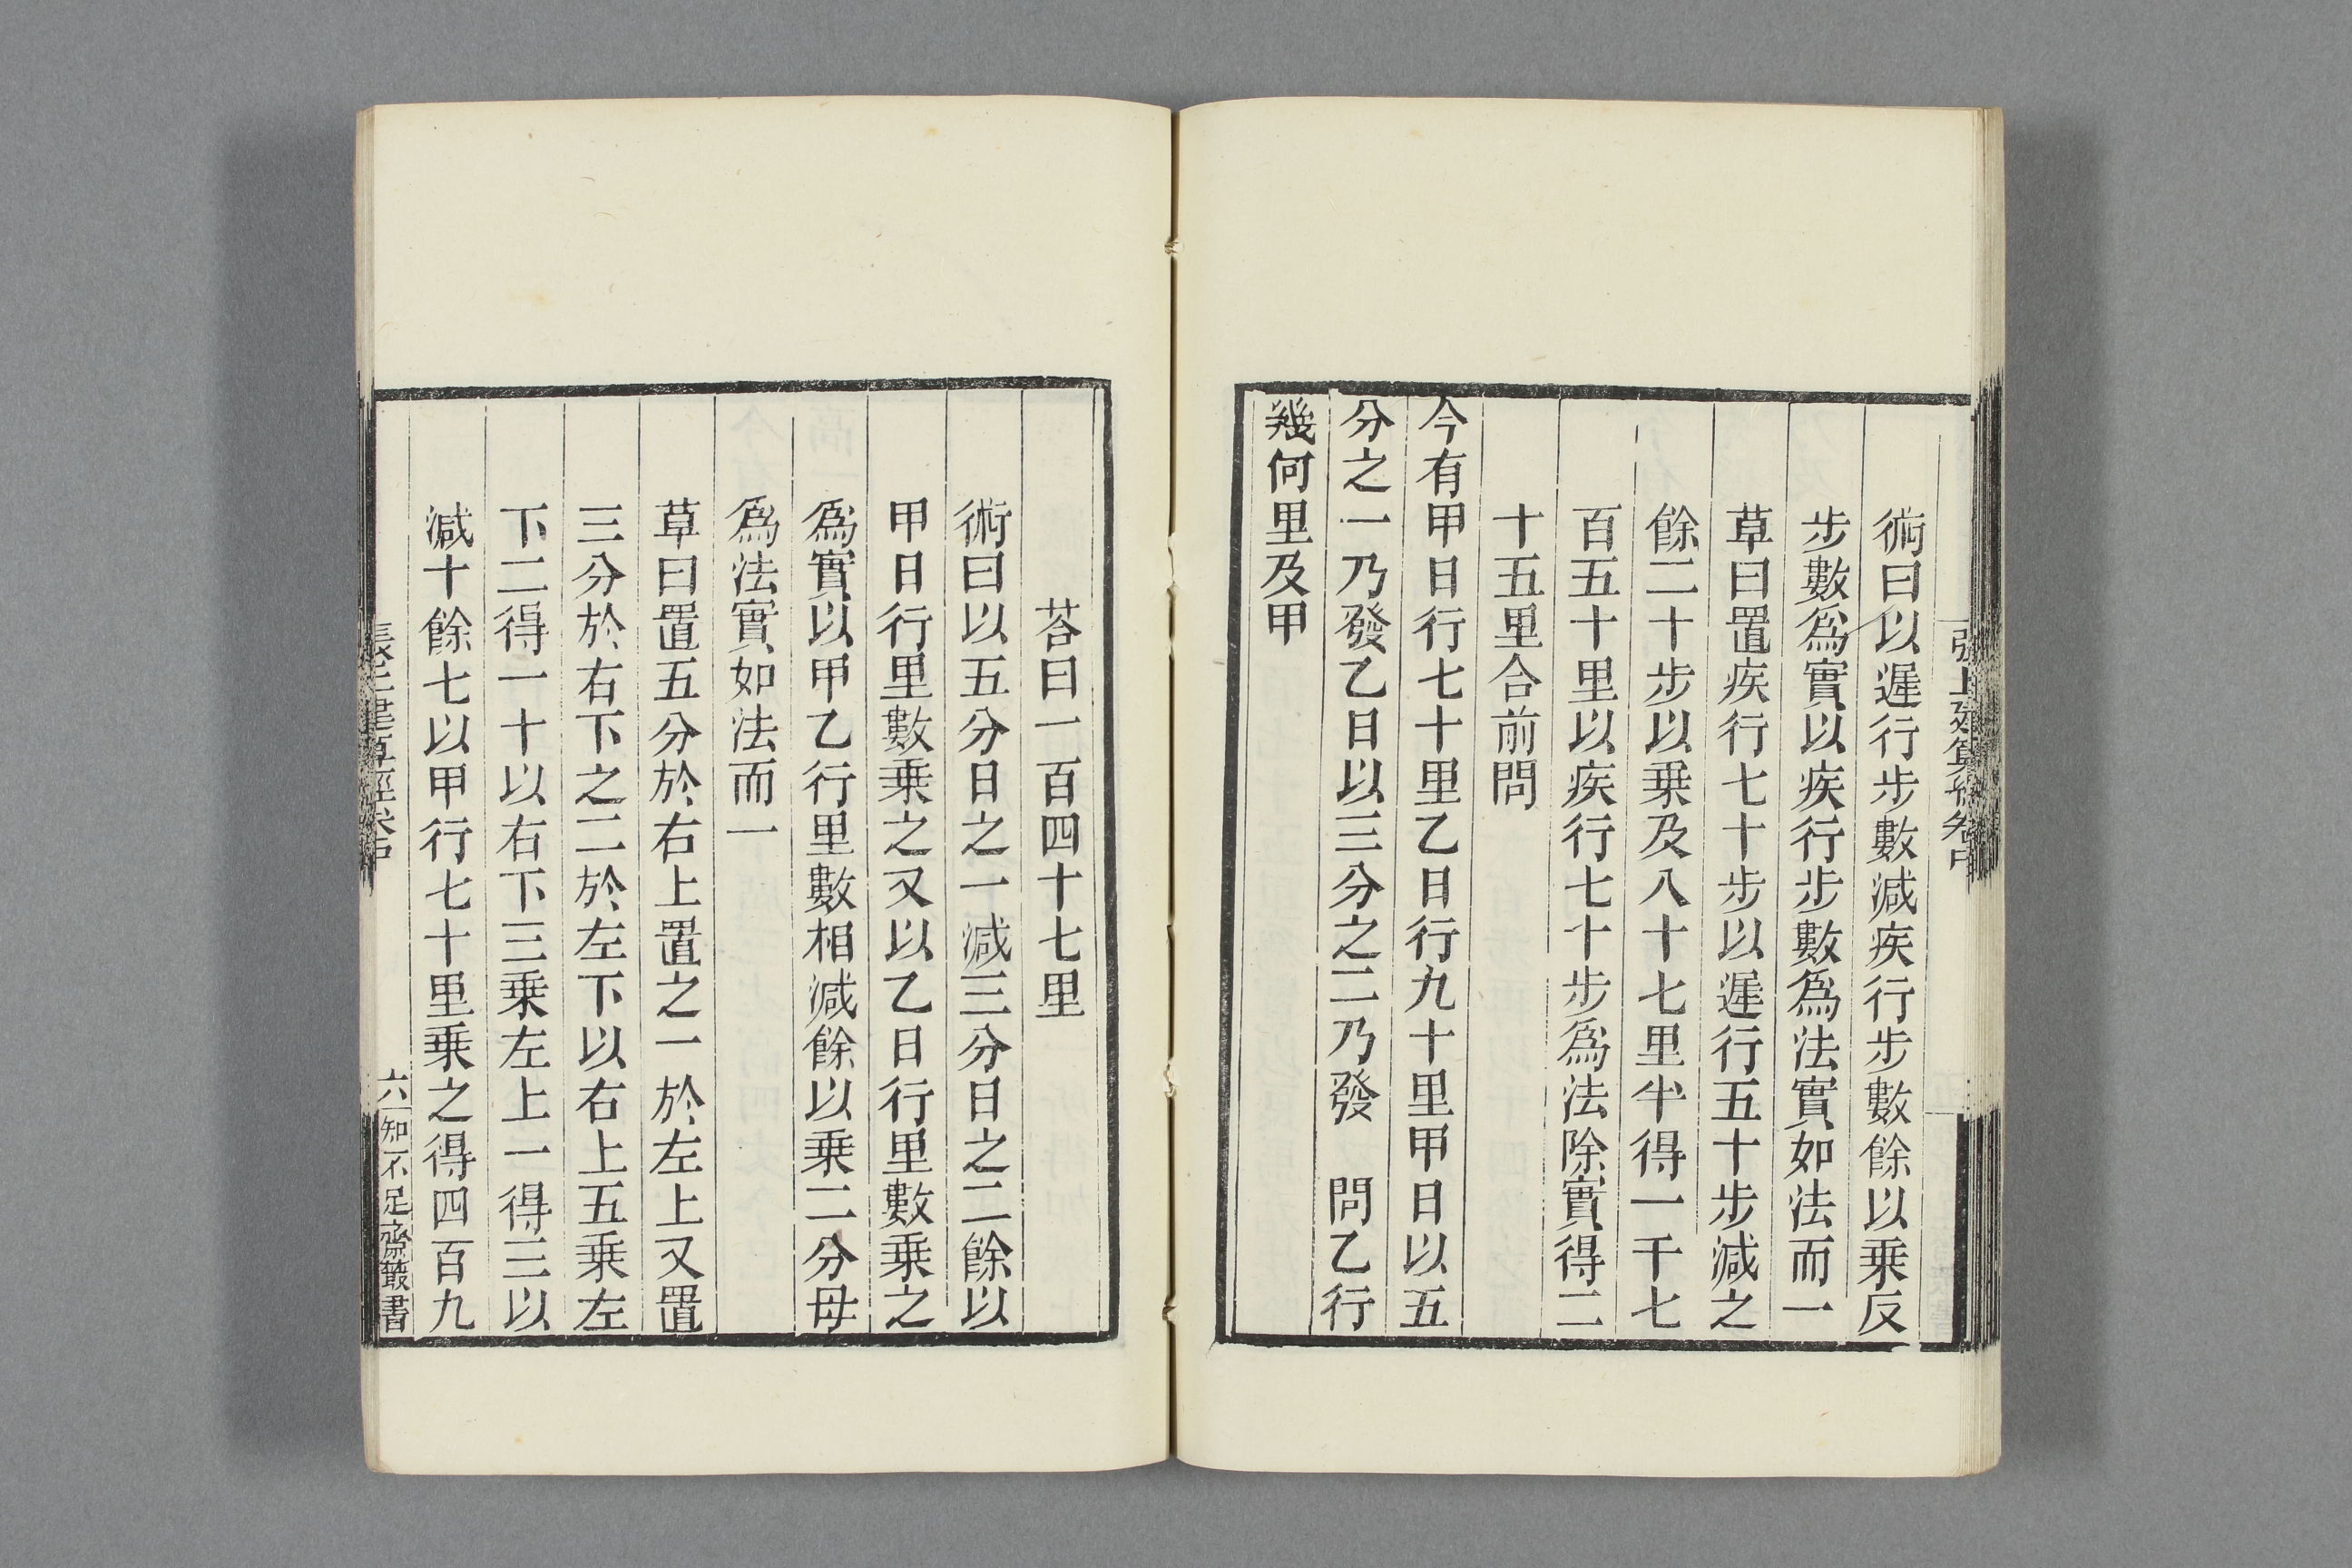 張丘建算經卷中
術曰以遲行步數減疾行步數餘以乗反
步數爲實以疾行步數爲法實如法而一
草曰置疾行七十步以遲行五十步減之
餘二十步以乗及八十七里半得一千七
百五十里以疾行七十步爲法除實得二
十五里合前問
今有甲日行七十里乙日行九十里甲日以五
分之一乃發乙日以三分之二乃發　問乙行
幾何里及甲
荅曰一百四十七里
術曰以五分日之一減三分日之二餘以
甲日行里數乗之又以乙日行里數乗之
爲實以甲乙行里數相減餘以乗二分母
爲法實如法而一
草曰置五分於右上置之一於左上又置
三分於右下之二於左下以右上五乗左
下二得一十以右下三乗左上一得三以
減十餘七以甲行七十里乗之得四百九
張丘建算經卷中
六
知不足齋叢書